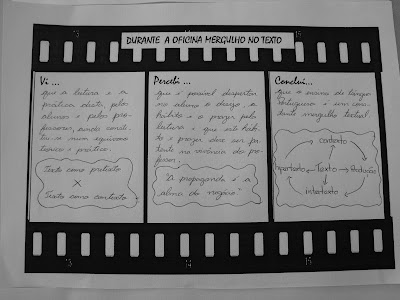 DURANTE A OFICINA MERGULHO NO TEXTO
Vi ...
que a leitura e a
prática desta, pelos
alunos e pelos pro-
fessores, ainda consti-
tui num equívoco
teórico e prático.
Texto como pretexto
X
Texto como contexto
Percebi ...
que é possível despertar
no aluno o desejo, o
hábito e o prazer pela
leitura e que este hábi-
to e prazer deve ser pa-
tente na vivência do pro-
fessor.
"A propaganda é a
alma do negócio"
Concluí...
que o ensino de língua
Portuguesa é um cons-
tante mergulho textual.
contexto
hipertexto
Texto
Produção
intertexto
14
15